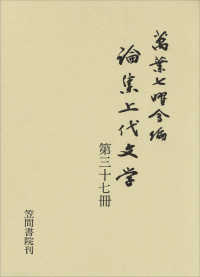 萬葉七曜会編
論集上代文学
第三十七冊
笠間書院刊